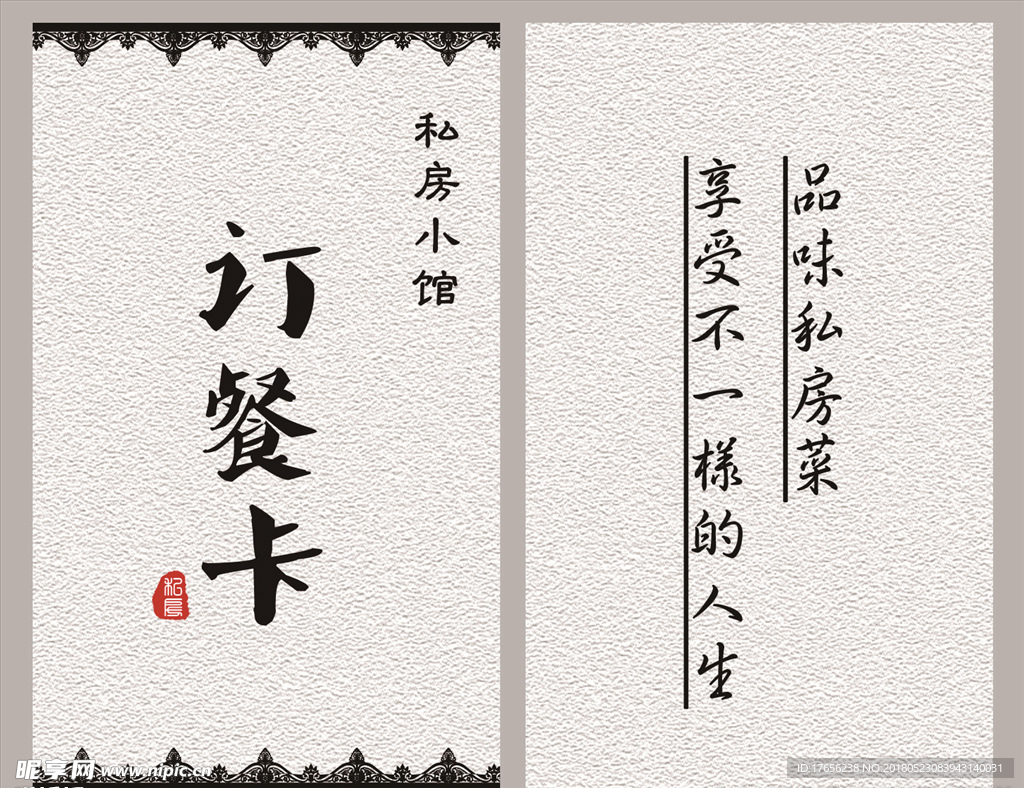 私房小馆
订餐卡
私房
品味私房菜
享受不一樣的人生
昵享网 www.nipic.cn
ID:17656238 NO:20180523083943140031